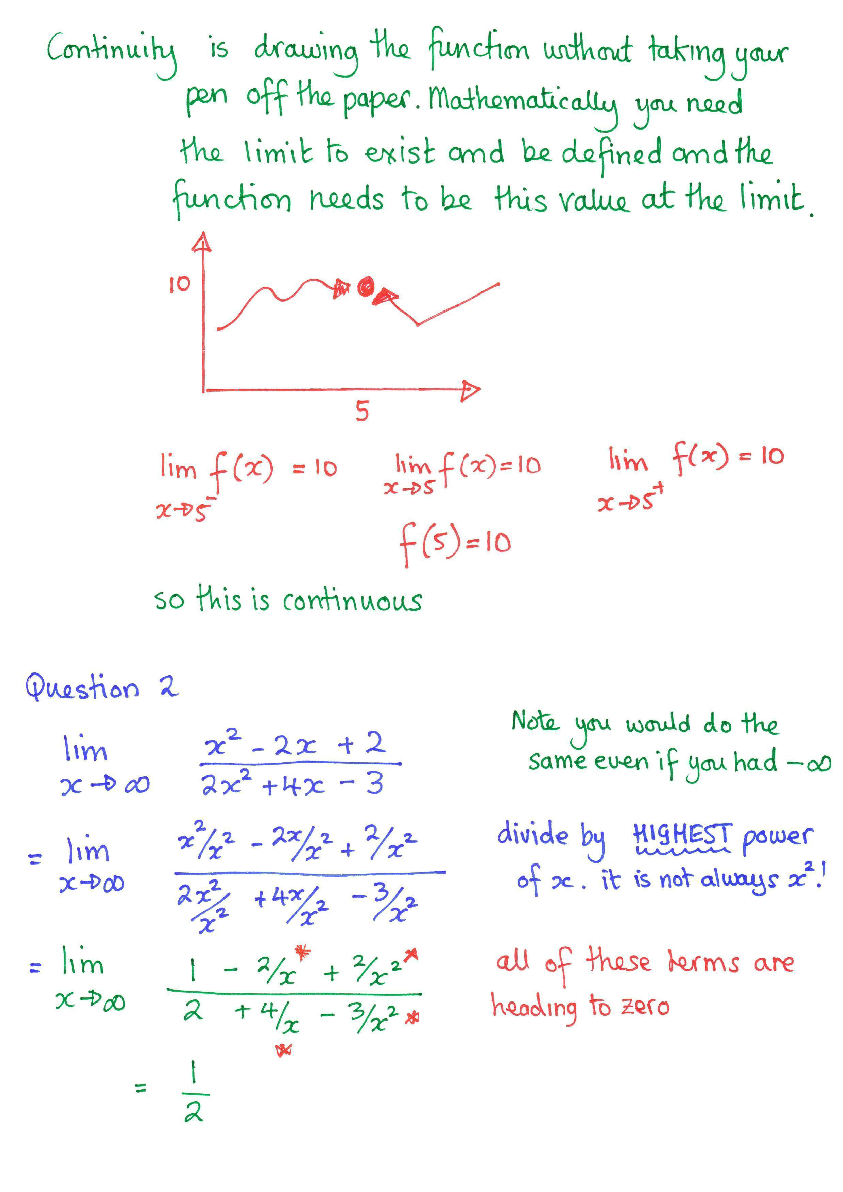 Continuity is drawing the function without taking your
pen off the paper. Mathematically you need
the limit to exist and be defined and the
function needs to be this value at the limit.
10
5
lim f(x) = 10 lim f(x) = 10 lim f(x) = 10
x→5⁻ x→5 x→5⁺
f(5) = 10
so this is continuous
Question 2
Note you would do the
same even if you had -∞
lim x² - 2x + 2
x→∞ 2x² + 4x - 3
= lim x²/x² - 2x/x² + 2/x²
x→∞ 2x²/x² + 4x/x² - 3/x²
divide by HIGHEST power
of x. it is not always x²!
= lim 1 - 2/x* + 2/x²*
x→∞ 2 + 4/x* - 3/x²*
all of these terms are
heading to zero
= 1
2